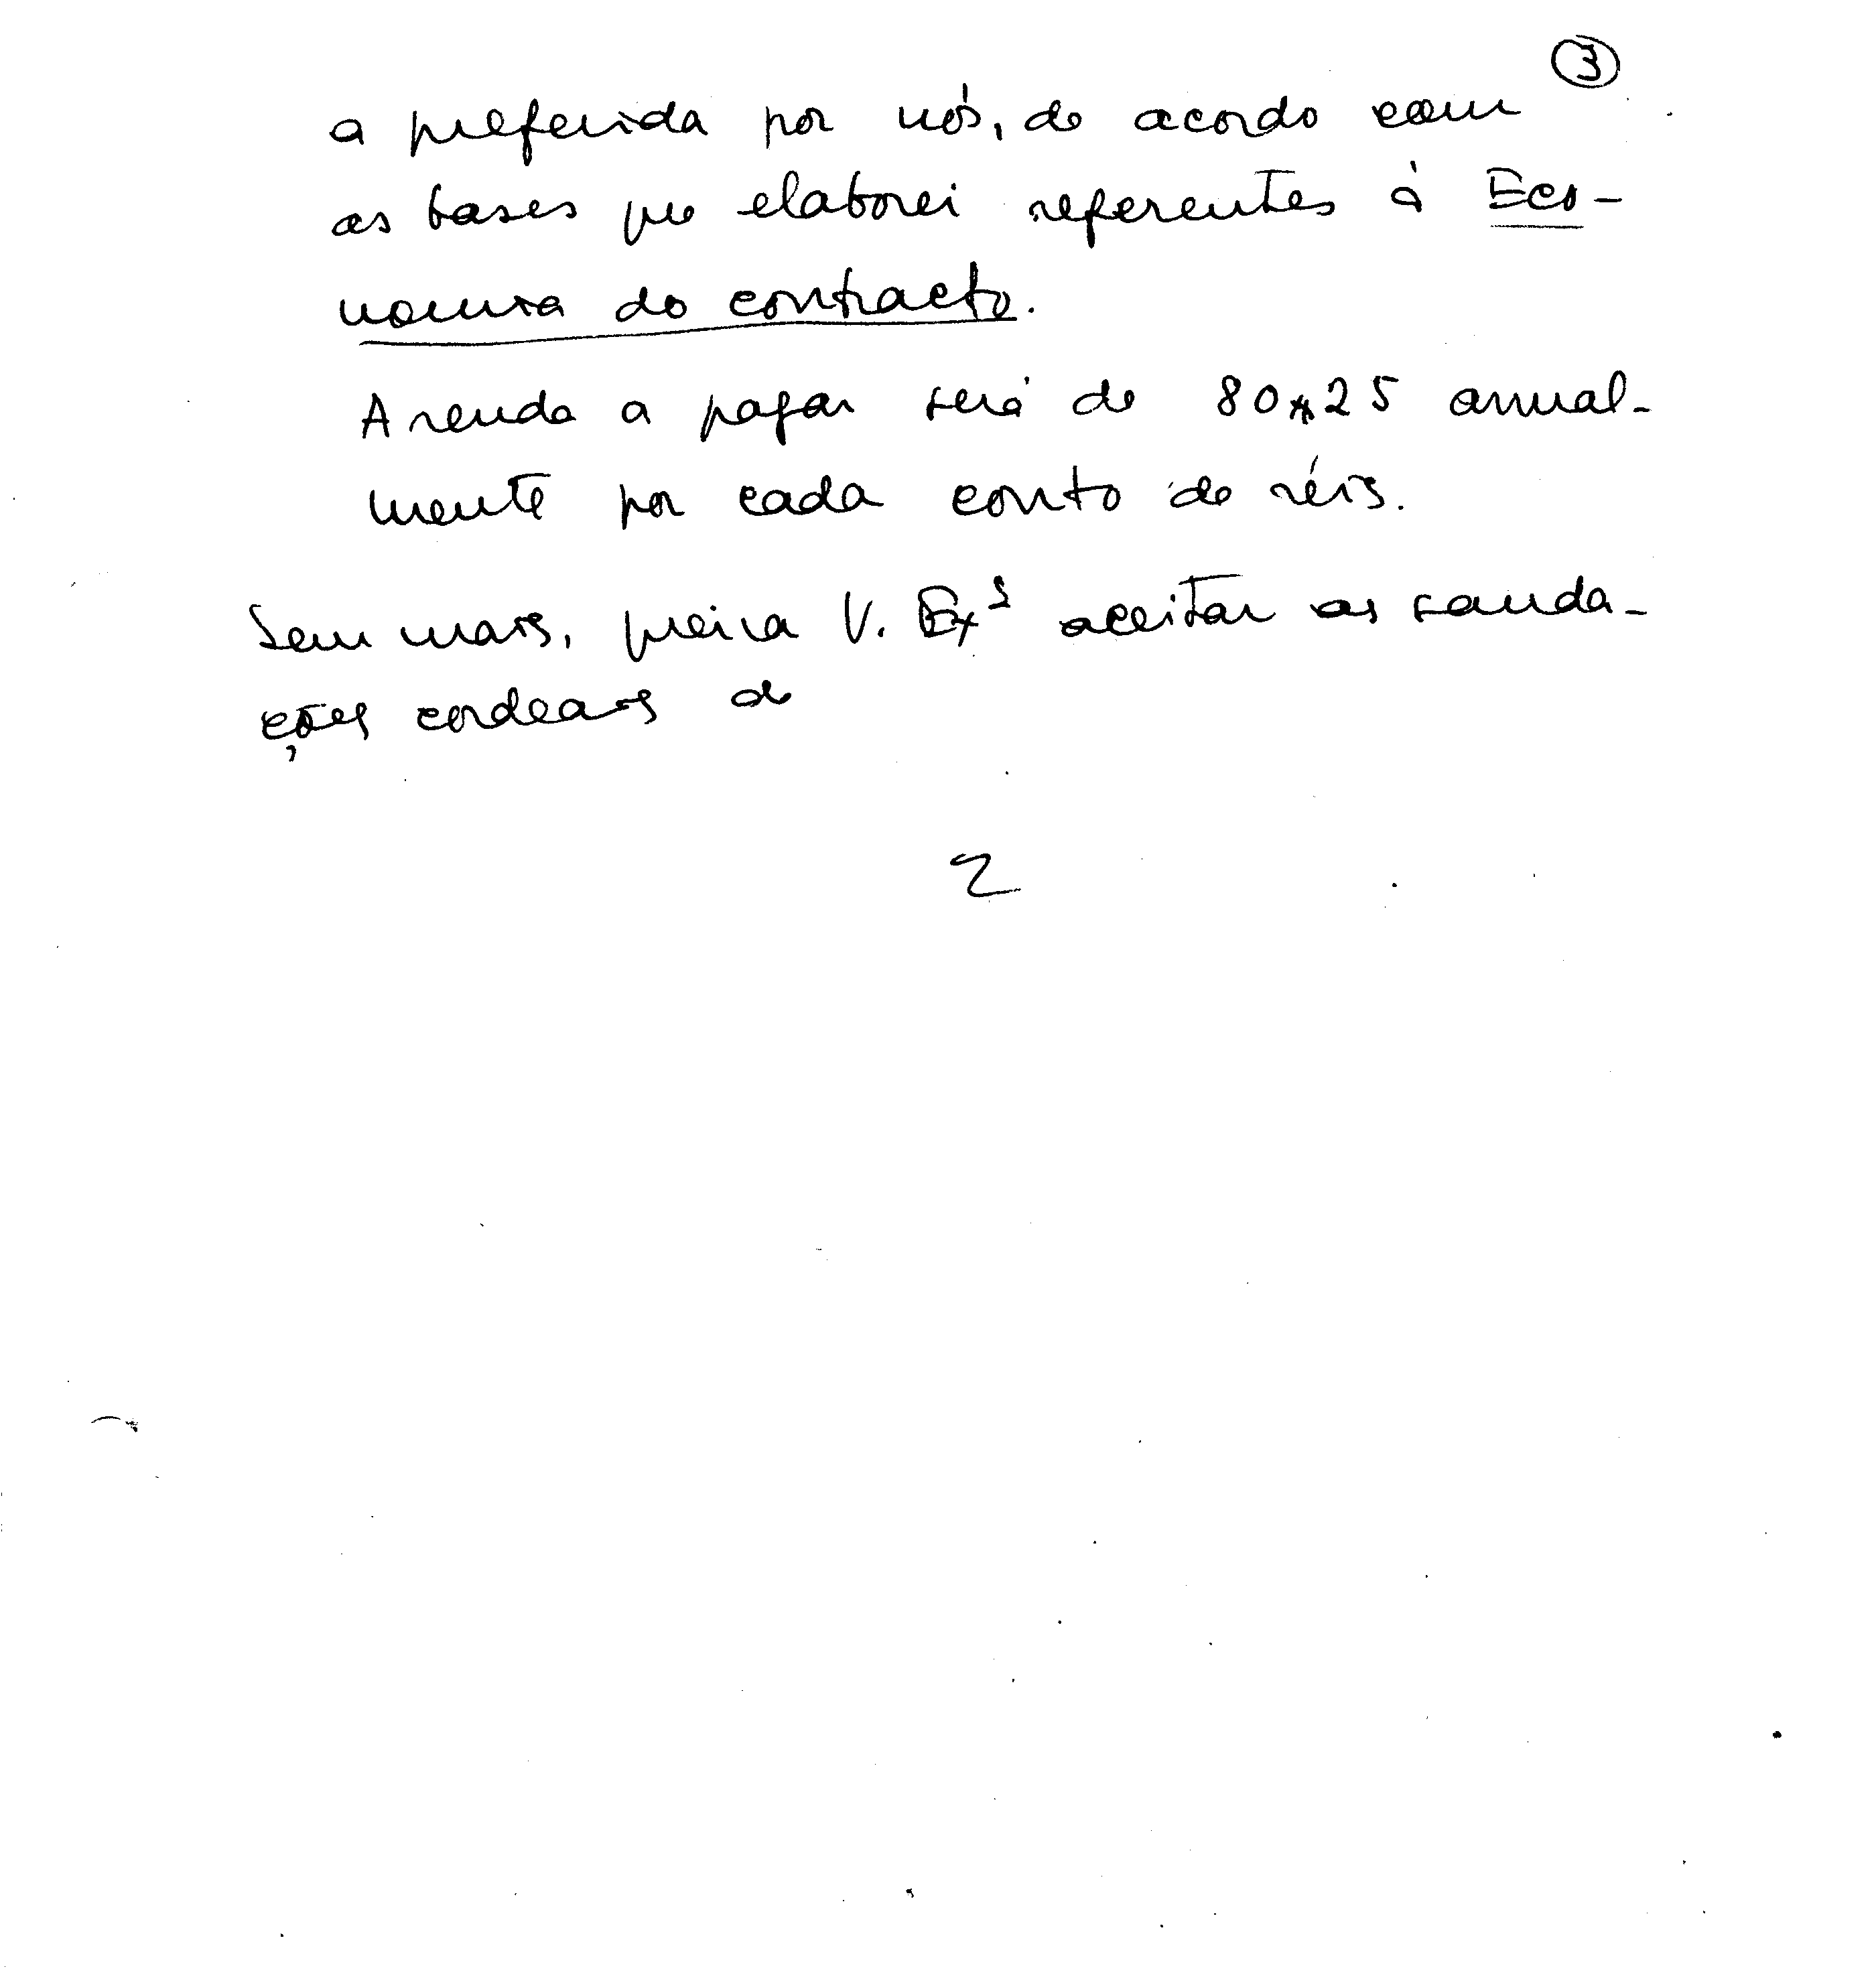 3
a preferida por nós, de acordo com
as bases que elaborei referentes à Eco-
nomia do contracto.
A renda a pagar será de 80$25 anual-
mente por cada conto de réis.
Sem mais, queira V. Exª aceitar as sauda-
ções cordeais de